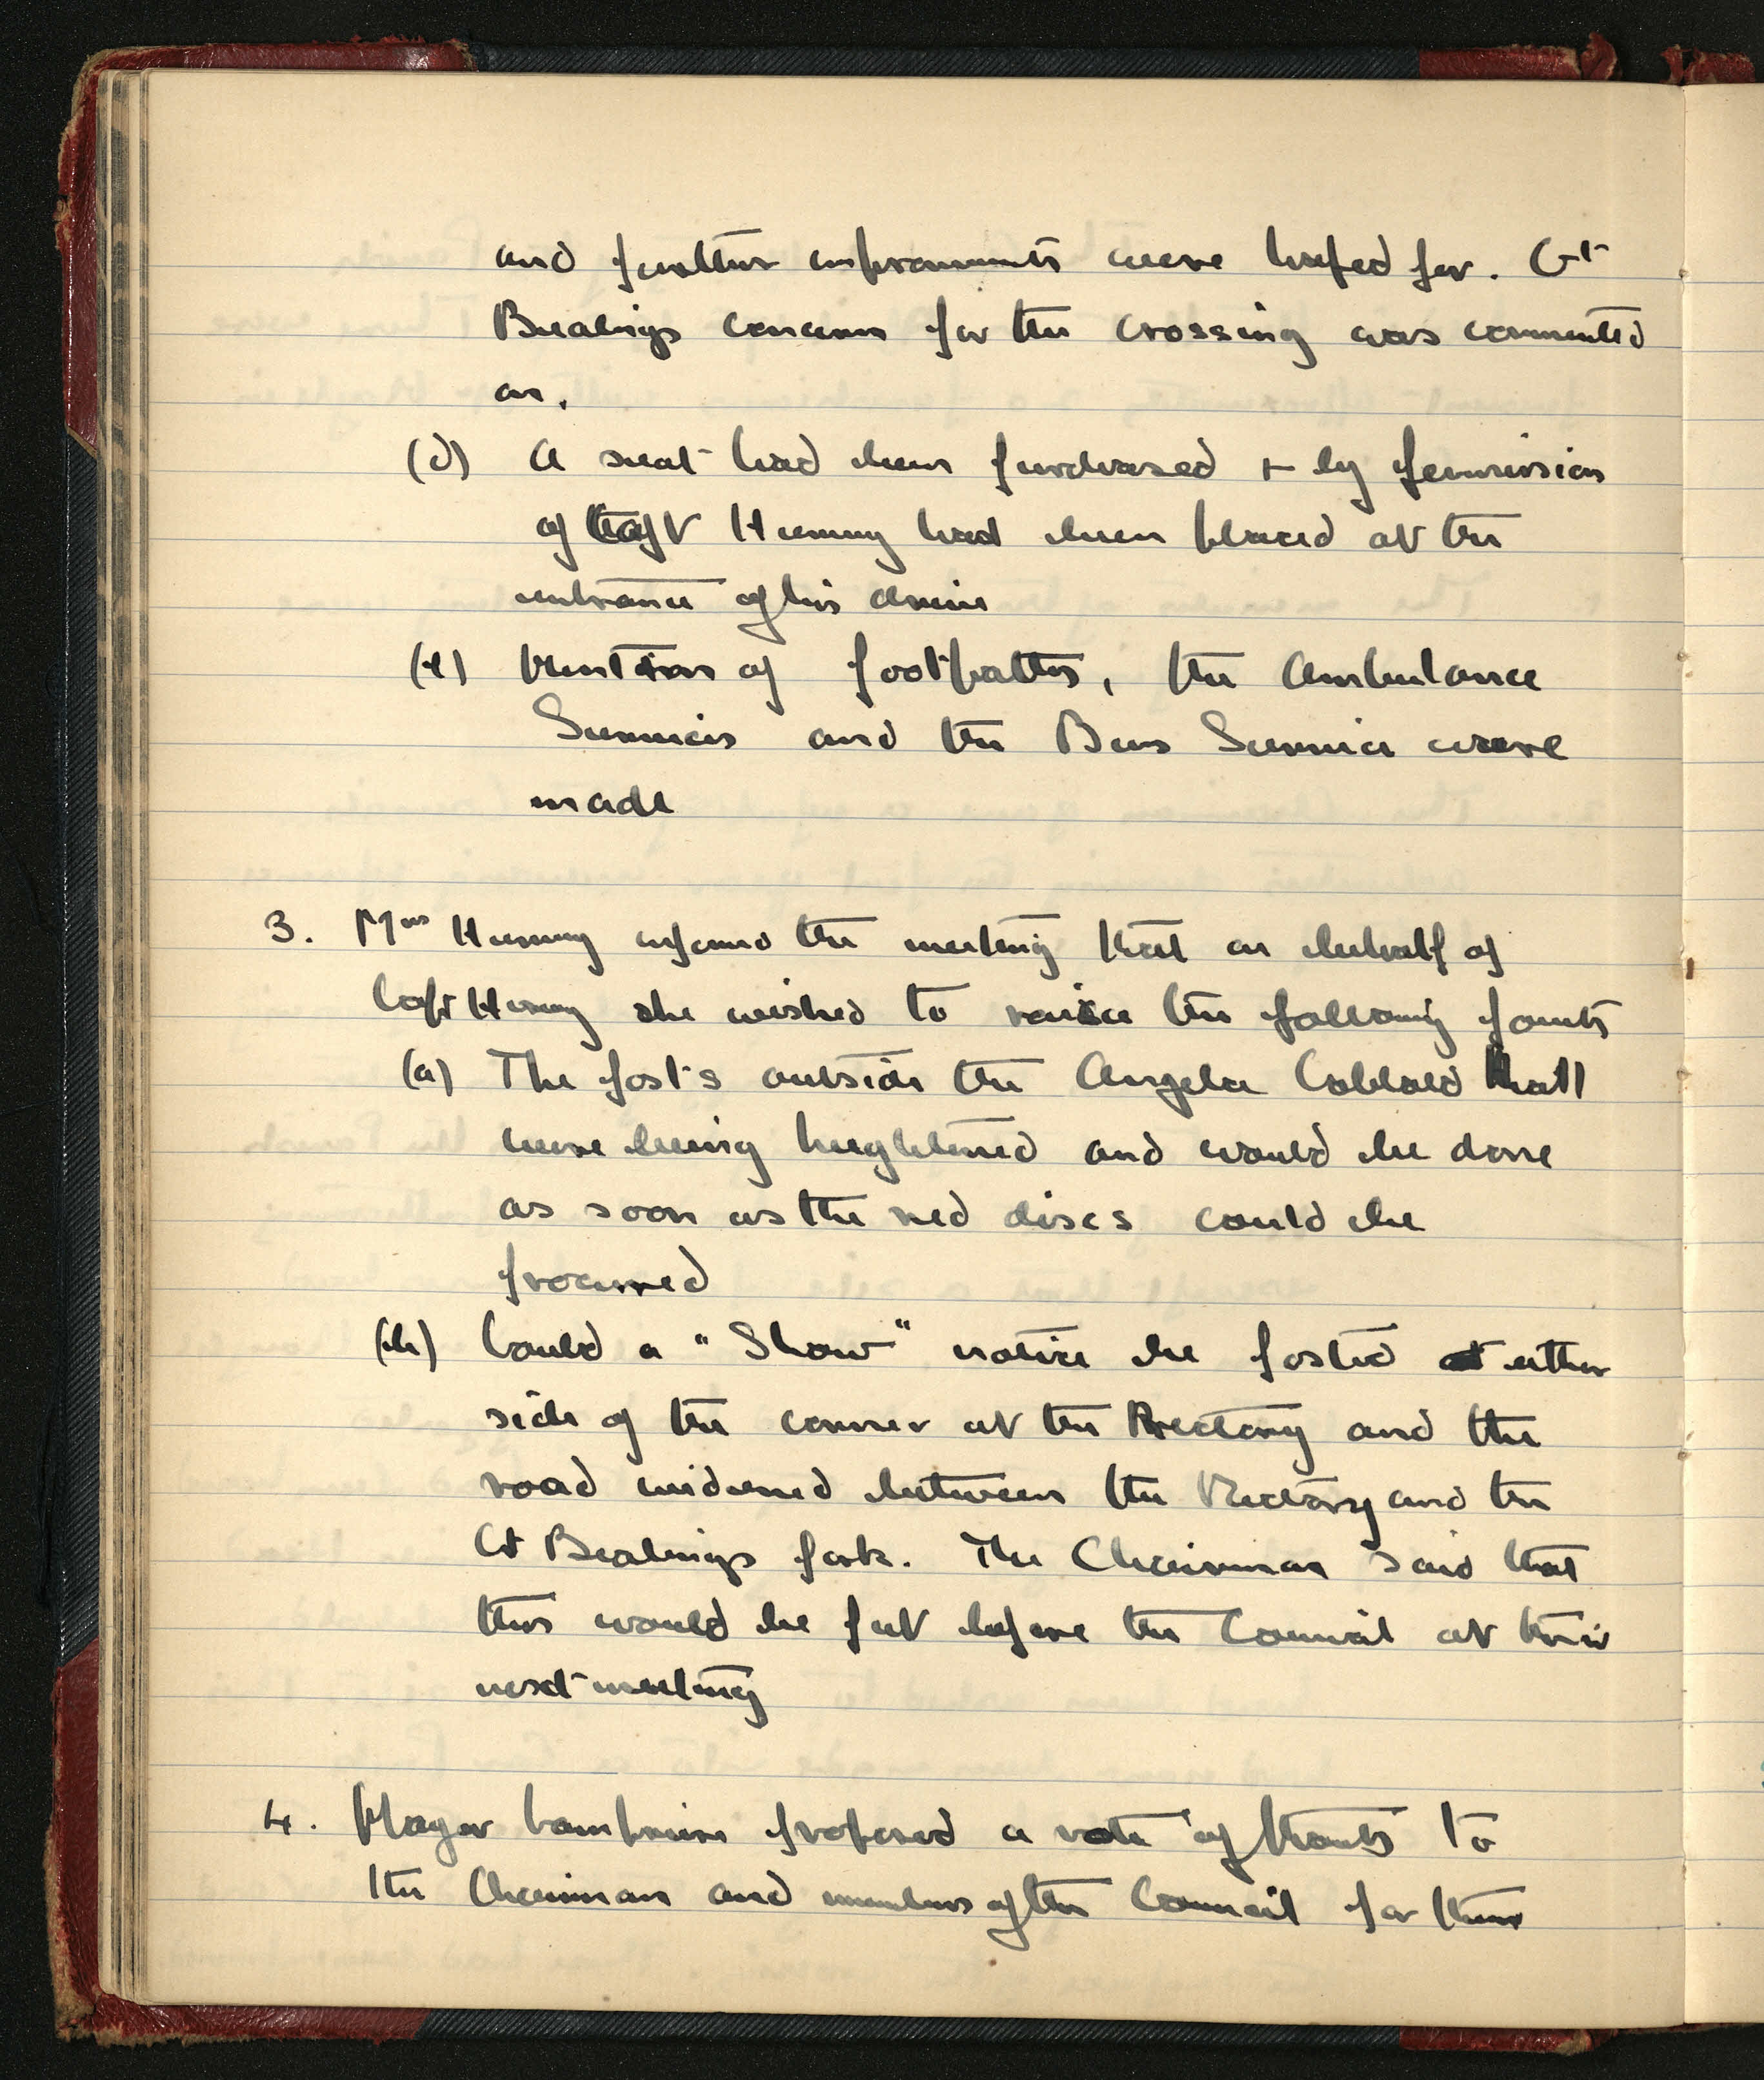 and further improvements were hoped for. Gt
Bealings concern for the crossing was commented
on.
(d) A seat had been purchased + by permission
of Capt Henny had been placed at the
entrance of his drive
(e) Mention of footpaths, the Ambulance
Services and the Bus Service were
made
3. Mrs Henny informed the meeting that on behalf of
Capt Henny she wished to raise the following points
(a) The posts outside the Angela Cobbold Hall
were being heightened and would be done
as soon as the red discs could be
procured
(b) Could a "Slow" notice be posted at either
side of the corner at the Rectory and the
road widened between the Rectory and the
Gt Bealings fork. The Chairman said that
this would be put before the Council at their
next meeting
4. Major proposed a vote of thanks to
the Chairman and members of the Council for their